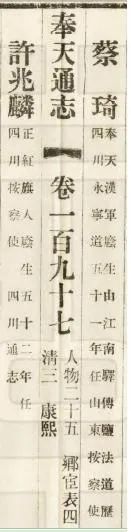 蔡琦 奉天漢軍廕生由江南驛傳鹽法道歷
四川永寧道五十一年任山東按察使
奉天通志 卷一百九十七 人物二十五 鄉宦表四
清三 康熙
許兆麟 正紅旗人廕生五十二年任
四川按察使 四川通志